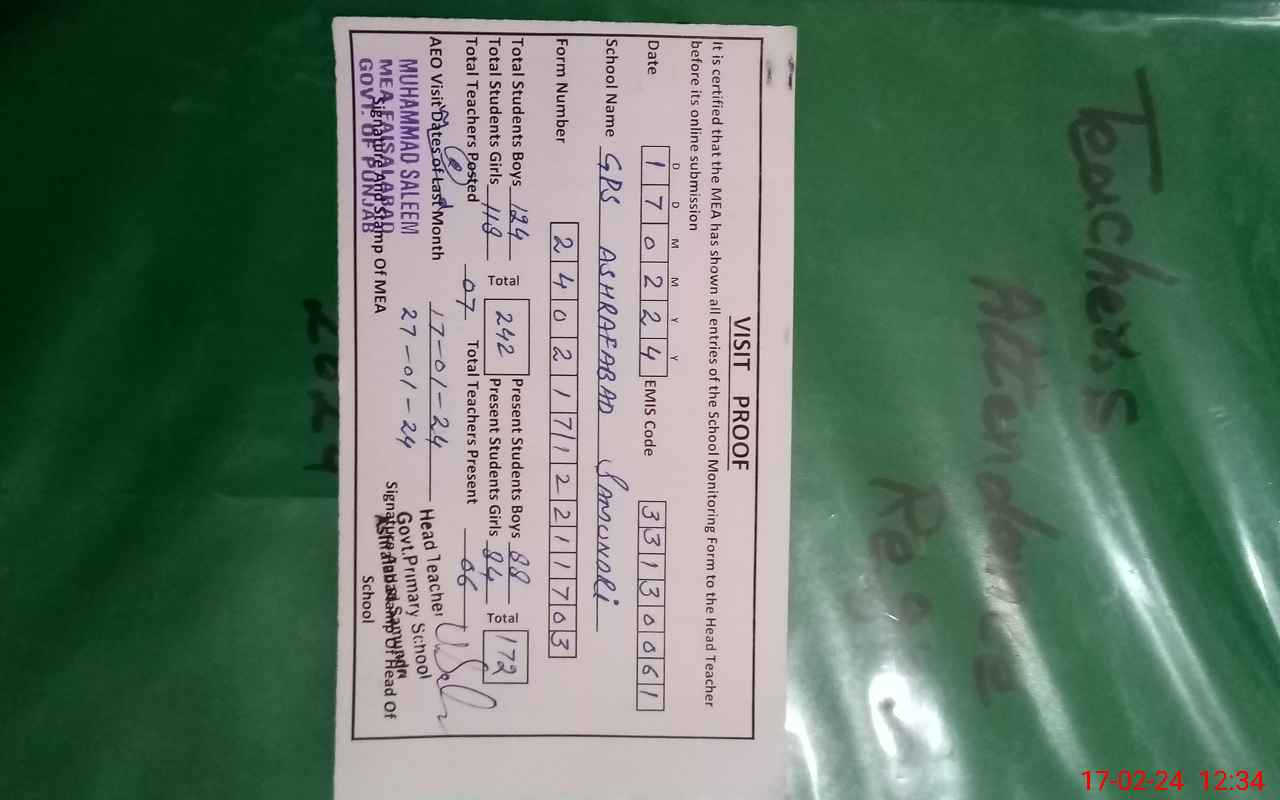 VISIT PROOF
It is certified that the MEA has shown all entries of the School Monitoring Form to the Head Teacher
before its online submission
D D M M Y Y
Date 1 7 0 2 2 4 EMIS Code 3 3 1 3 0 0 6 1
School Name GPS ASHRAFABAD SAMUNDRI
Form Number 2 4 0 2 1 7 1 2 2 1 1 7 0 3
Total Students Boys 124 Total 242 Present Students Boys 88 Total 172
Total Students Girls 118 Present Students Girls 84
Total Teachers Posted 07 Total Teachers Present 06
AEO Visit Dates of Last Month 17-01-24
27-01-24
MUHAMMAD SALEEM
MEA FAISALABAD
GOVT. OF PUNJAB
Signature And Stamp Of MEA
Head Teacher
Govt.Primary School
Ashrafabad Samundri
Signature And Stamp Of Head Of
School
Teacher,s
Attendance
2024
17-02-24 12:34